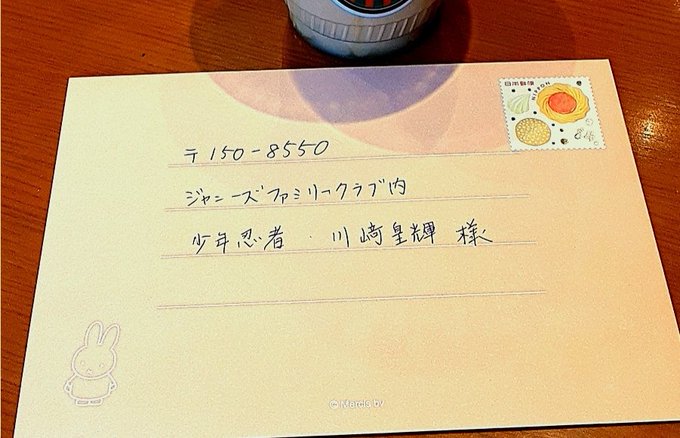 日本郵便
NIPPON
84
〒150-8550
ジャニーズファミリークラブ内
少年忍者・川﨑皇輝 様
© Mercis bv